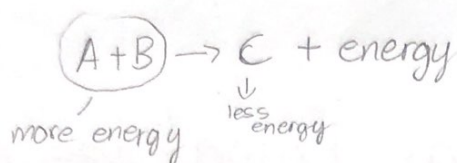 A + B → C + energy
more energy
less energy